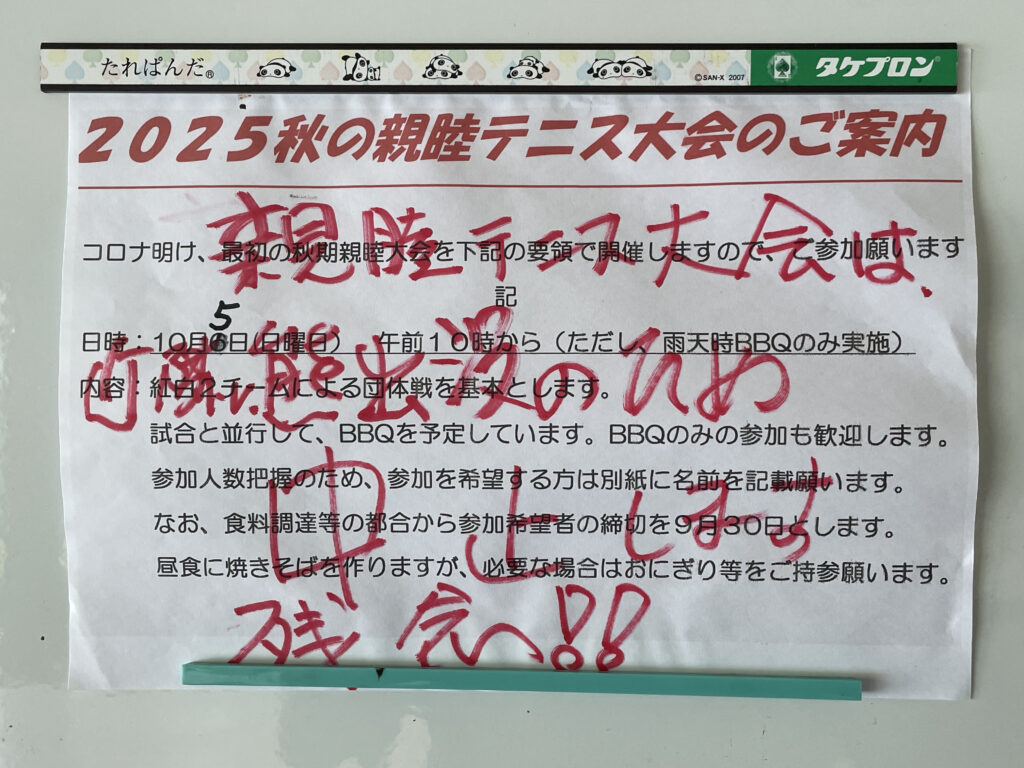 たれぱんだ®
©SAN-X 2007
タケプロン®
2025秋の親睦テニス大会のご案内
コロナ明け、最初の秋期親睦大会を下記の要領で開催しますので、ご参加願います
記
日時：10月5日(日曜日)　午前10時から（ただし、雨天時BBQのみ実施）
内容：紅白2チームによる団体戦を基本とします。
試合と並行して、BBQを予定しています。BBQのみの参加も歓迎します。
参加人数把握のため、参加を希望する方は別紙に名前を記載願います。
なお、食料調達等の都合から参加希望者の締切を9月30日とします。
昼食に焼きそばを作りますが、必要な場合はおにぎり等をご持参願います。
親睦テニス大会は、
熊出没のため
中止します
残念!!